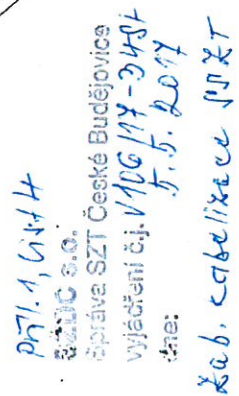 příl. 1, list 4
SŽDC s.o.
Správa SZT České Budějovice
vyjádření č.j. V/106/17-SAST
dne: 5.5.2017
Zab. kabelizace SSZT